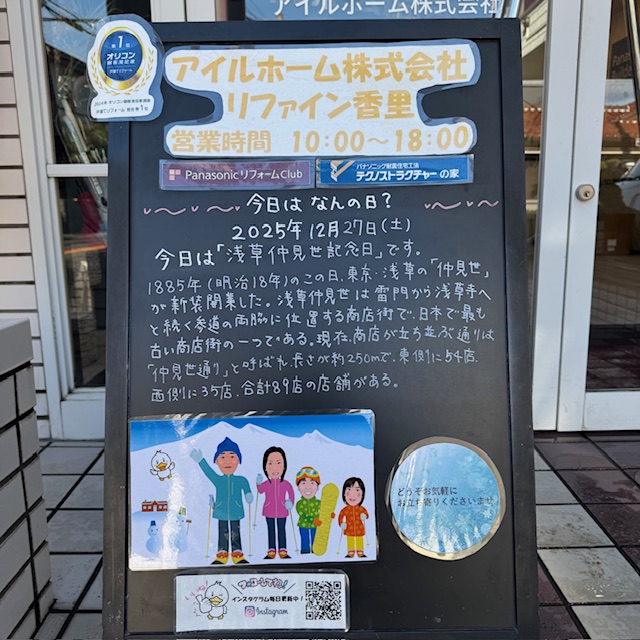 アイルホーム株式会社
第1位
オリコン
顧客満足度
アイルホーム株式会社
リファイン香里
営業時間 10:00〜18:00
Panasonic リフォームClub
パナソニック耐震住宅工法
テクノストラクチャーの家
今日は なんの日?
2025年12月27日(土)
今日は「浅草仲見世記念日」です。
1885年(明治18年)のこの日、東京・浅草の「仲見世」
が新装開業した。浅草仲見世は雷門から浅草寺へ
と続く参道の両脇に位置する商店街で、日本で最も
古い商店街の一つである。現在、商店が立ち並ぶ通りは
「仲見世通り」と呼ばれ、長さが約250mで、東側に54店、
西側に35店、合計89店の店舗がある。
どうぞお気軽に
お立ち寄りくださいませ
フォローしてネ!
インスタグラム毎日更新中!
Instagram